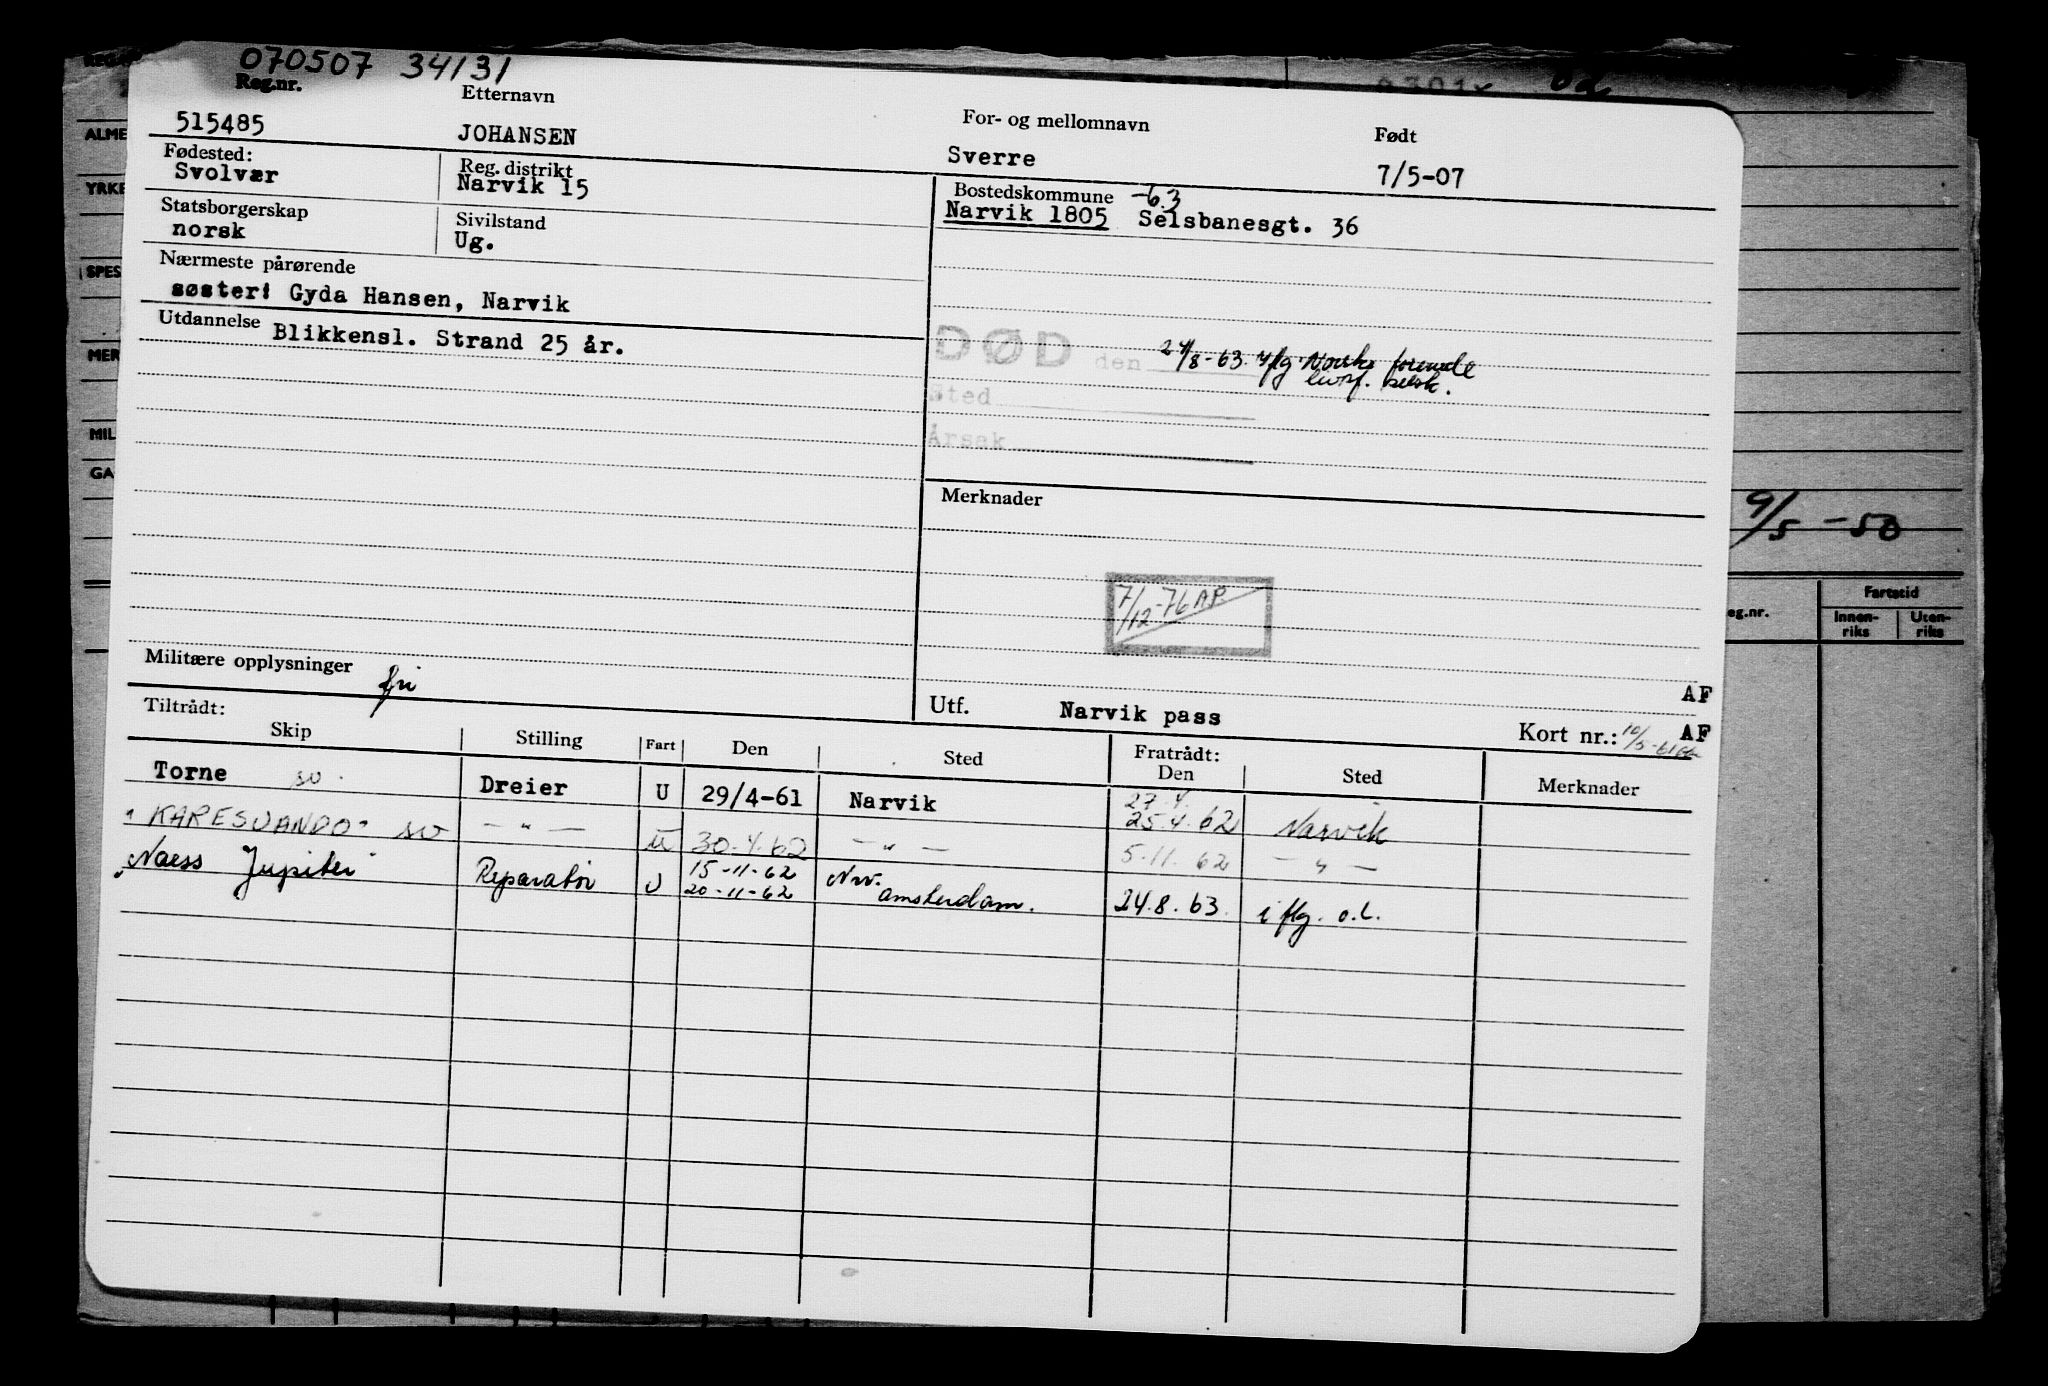 070507 34131
Reg.nr. Etternavn For- og mellomnavn Født
515485 JOHANSEN Sverre 7/5-07
Fødested: Reg. distrikt Bostedskommune -63
Svolvær Narvik 15 Narvik 1805 Selsbanesgt. 36
Statsborgerskap Sivilstand
norsk Ug.
Nærmeste pårørende
søster: Gyda Hansen, Narvik
Utdannelse Blikkensl. Strand 25 år.
DØD den 24/8-63 iflg Norske forenede
livsf. selsk.
Sted
Årsak
Merknader
7/12-76 A.P.
Militære opplysninger fri
AF
Utf. Narvik pass Kort nr.: AF
Tiltrådt: Fratrådt:
Skip Stilling Fart Den Sted Den Sted Merknader
Torne sv. Dreier U 29/4-61 Narvik 27.4. 25.4.62 Narvik
"KARESUANDO" sv — " — U 30.4.62 — " — 5.11.62 — " —
"Naess Jupiter Reparatør U 15-11-62 Nrv. 24.8.63 i flg. o.l.
20-11-62 Amsterdam.
ALME
YRKE
SPES
MER
MIL
GA
9/5-50
eg.nr. Fartstid
Innen-riks Uten-riks